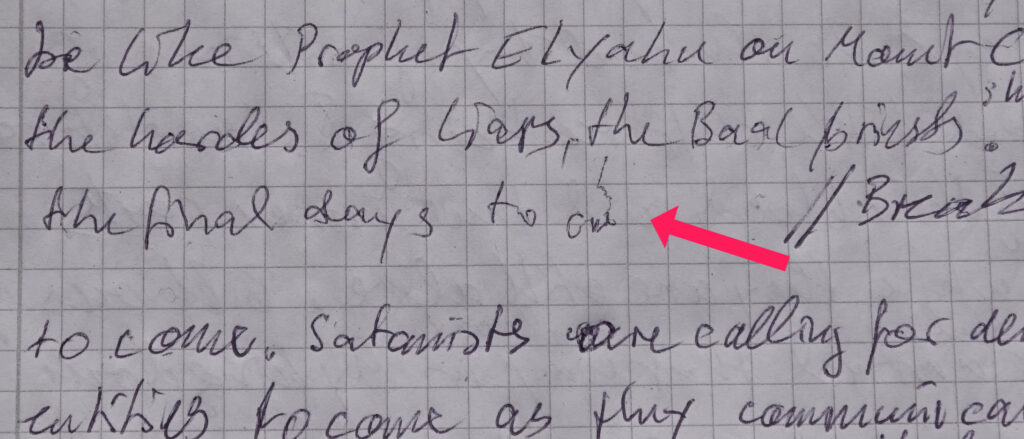 be like Prophet ELyahu on Mount C
the hordes of liars, the Baal priests. sh
the final days to // Break
to come. Satanists are calling for de
entities to come as they communica